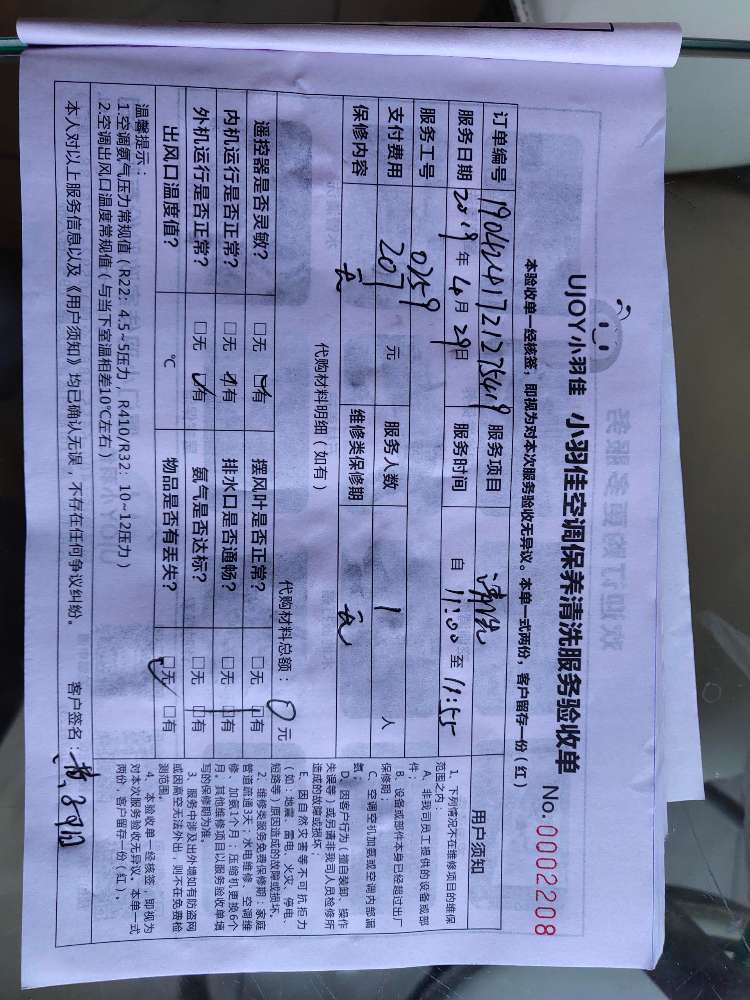 UJOY小羽佳 小羽佳空调保养清洗服务验收单 No. 0002208
本验收单一经核签，即视为对本次服务验收无异议。本单一式两份，客户留存一份（红）
订单编号 服务项目 清洗
服务日期 2019 年 4 月 29 日 服务时间 自 11:00 至 11:55
服务工号 0759
支付费用 207 元 服务人数 1 人
保修内容 无 维修类保修期 无
代购材料明细（如有）
代购材料总额： 0 元
遥控器是否灵敏？ □无 □有 摆风叶是否正常？ □无 □有
内机运行是否正常？ □无 □有 排水口是否通畅？ □无 □有
外机运行是否正常？ □无 □有 氨气是否达标？ □无 □有
出风口温度值？ ℃ 物品是否有丢失？ □无 □有
温馨提示：
1.空调氨气压力常规值（R22：4.5~5压力，R410/R32：10~12压力）
2.空调出风口温度常规值（与当下室温相差10℃左右）
本人对以上服务信息以及《用户须知》均已确认无误，不存在任何争议纠纷。 客户签名：
用户须知
1、下列情况不在维修项目的维保
范围之内：
A、非我司员工提供的设备或部
件；
B、设备或部件本身已经超过出厂
保修期；
C、空调空机加氨或空调内部漏
氨；
D、因客户行为（擅自装卸、操作
失误等）或另请非我司人员检修所
造成的故障或损坏；
E、因自然灾害等不可抗拒力
（如：地震、雷电、火灾、停电、
短路等）原因造成的故障或损坏。
2、维修类服务免费保修期：家庭
管道疏通3天；水电维修、空调维
修、加氨1个月；压缩机更换6个
月。其他维修项目以服务验收单填
写的保修期为准。
3、服务中涉及出外墙如有防盗网
或因高空无法外出，则不在免费检
测范围。
4、本验收单一经核签，即视为
对本次服务验收无异议。本单一式
两份，客户留存一份（红）。